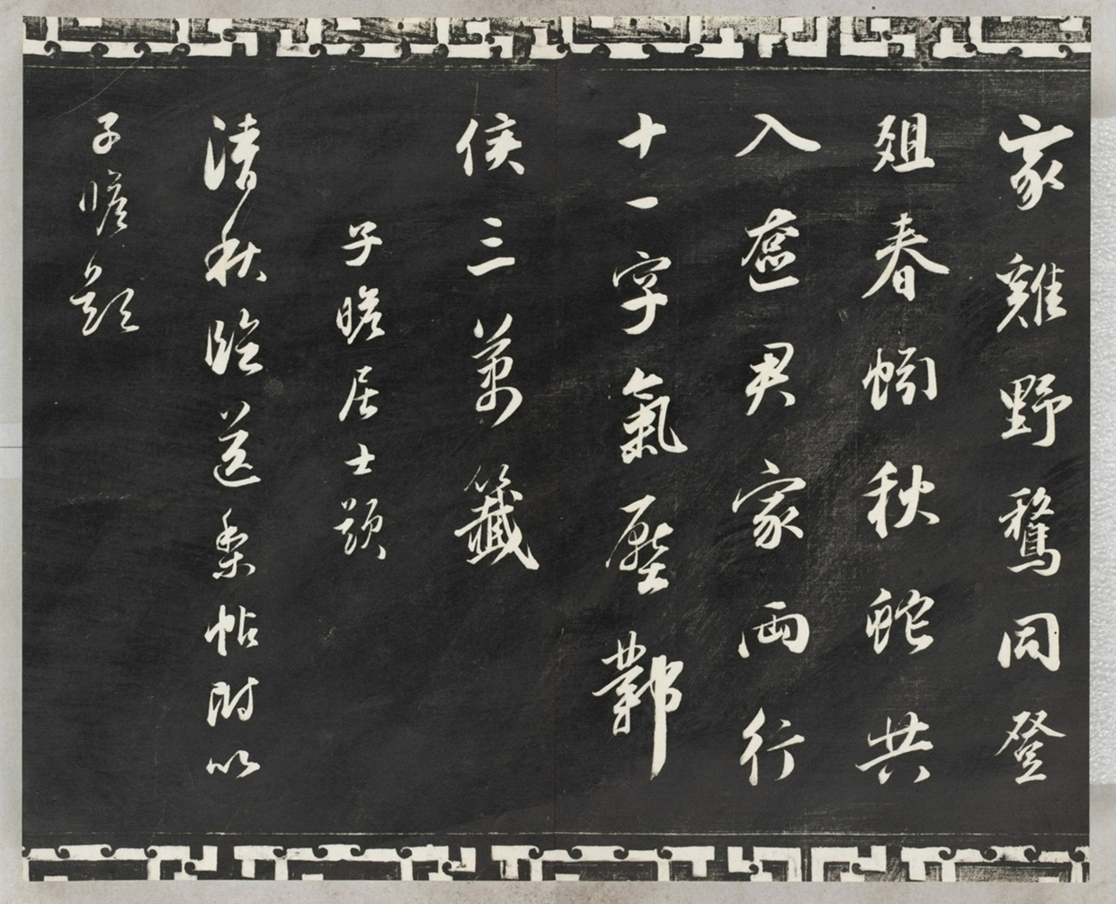 家雞野鶩同登
俎春蚓秋蛇共
入奩君家兩行
十一字氣壓鄴
侯三萬籤
子瞻居士題
清秋臨送梨帖附以
子瞻題